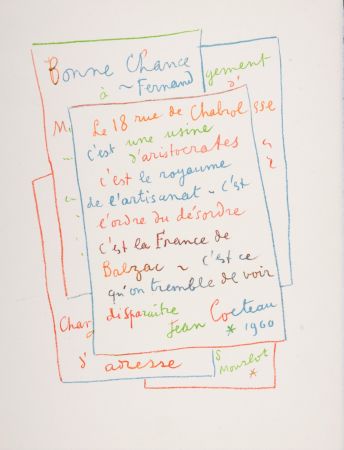 Bonne Chance
à ~ Fernand
gement
d'
M
Le 18 rue de Chabrol
sse
c'est une usine
d'aristocrates
c'est le royaume
de l'artisanat ~ c'est
l'ordre du désordre
c'est la France de
Balzac ~ c'est ce
qu'on tremble de voir
disparaître
Chan
Jean Cocteau
* 1960
d' adresse
S
Mourlot
*